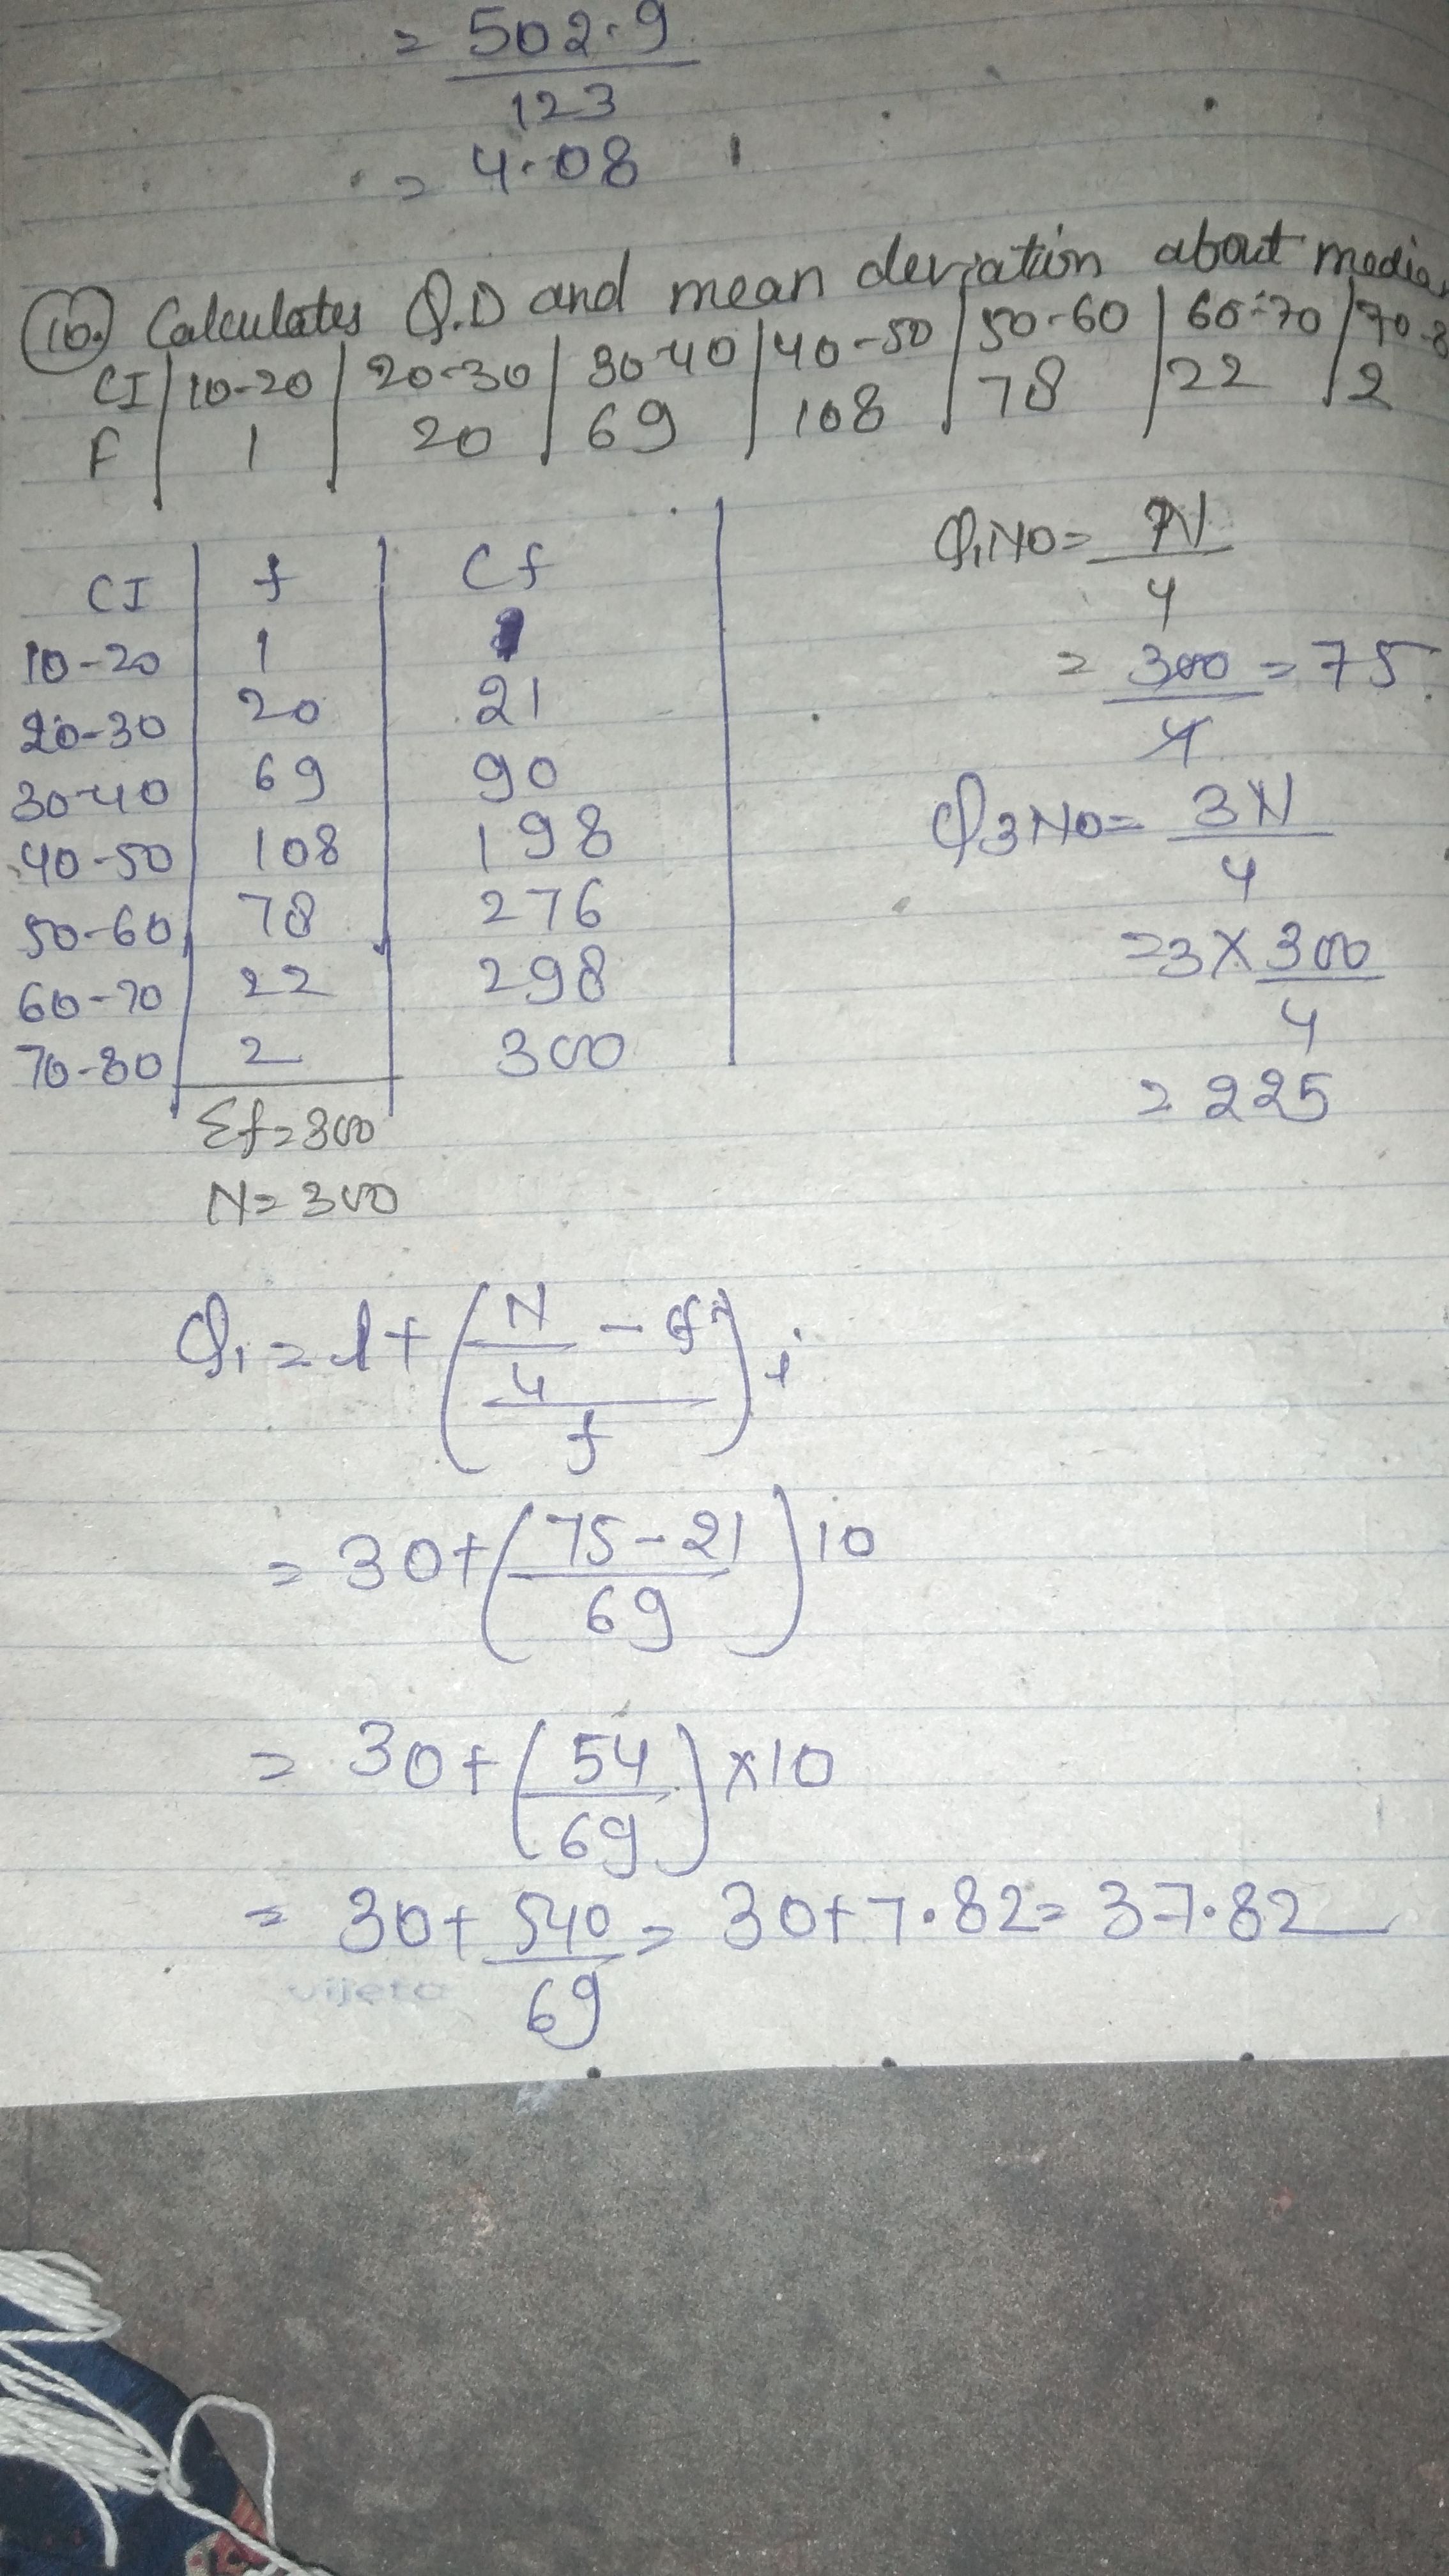 = 502.9
123
= 4.08
10. Calculates Q.D and mean deviation about
CI | 10-20 | 20-30 | 30-40 | 40-50 | 50-60 | 60-70 | 70-8
F | 1 | 20 | 69 | 108 | 78 | 22 | 2
CI | f | Cf
10-20 | 1 | 1
20-30 | 20 | 21
30-40 | 69 | 90
40-50 | 108 | 198
50-60 | 78 | 276
60-70 | 22 | 298
70-80 | 2 | 300
Σf=300
N=300
Q1NO= N
4
= 300 = 75
4
Q3NO= 3N
4
=3×300
4
= 225
Q1 = l+(N/4 - cf / f) i
= 30+(75-21 / 69) 10
= 30+(54 / 69) ×10
= 30+540/69 = 30+7.82= 37.82
vijeta